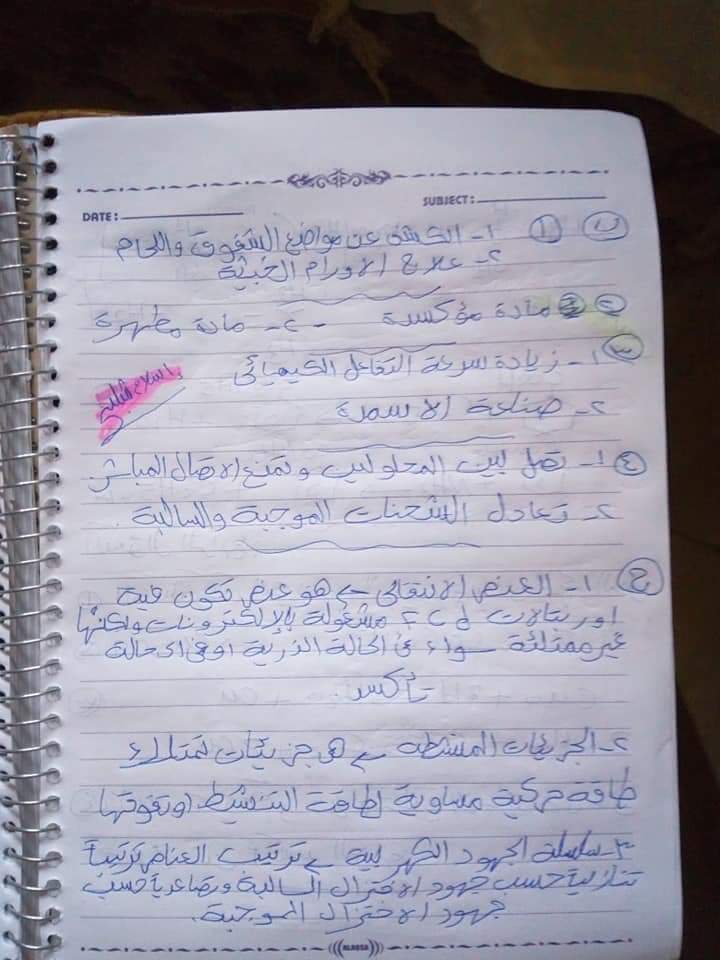 DATE: SUBJECT:
ب ١ ١- الكشف عن مواضع الشقوق واللحام
٢- علاج الاورام الخبيثة
٢ مادة مؤكسدة - ٢- مادة مطهرة
٣ ١- زيادة سرعة التفاعل الكيميائى
٢- صناعة الاسمدة
٤ ١- تصل بين المحلولين وتمنع الاتصال المباشر
٢- تعادل الشحنات الموجبة والسالبة.
ج ١- العنصر الانتقالى هو عنصر تكون فية
اوربيتالات d , f مشغولة بالإلكترونات ولكنها
غير ممتلئة سواء فى الحالة الذرية او فى اى حالة
تأكسد.
٢- الجزيئات المنشطه هى جزيئات تمتلك
طاقة حركية مساوية لطاقة التنشيط او تفوقها
٣- سلسلة الجهود الكهربية ترتيب العناصر ترتيباً
تنازلياً حسب جهود الاختزال السالبة وتصاعدياً حسب
جهود الاختزال الموجبة.
ALASSA